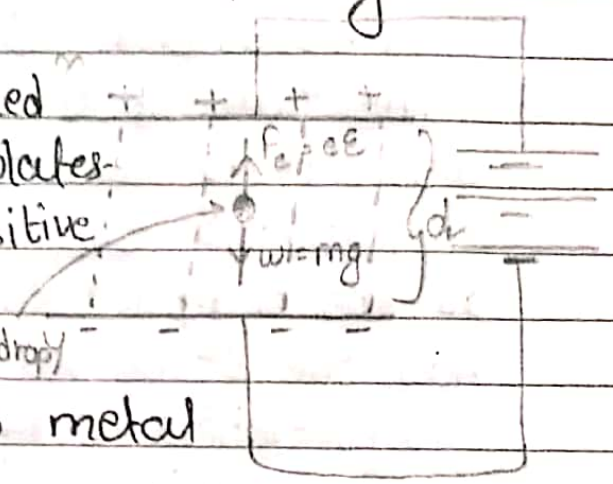 ed
+ + + +
plates-
Fe = eE
sitive
d
w=mg
- - - -
drop
metal